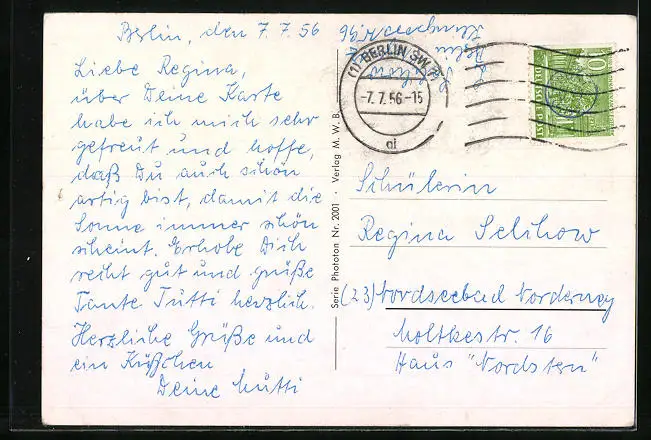 Berlin, den 7.7.56
Liebe Regina,
über Deine Karte
habe ich mich sehr
gefreut und hoffe,
daß Du auch schön
artig bist, damit die
Sonne immer schön
scheint. Erhole Dich
recht gut und grüße
Tante Tutti herzlich.
Herzliche Grüße und
ein Küßchen
Deine Mutti
Serie Phototon Nr. 2001 · Verlag M. W. B.
(1) BERLIN SW
-7.7.56-15
ai
DEUTSCHE POST
10
Schülerin
Regina Selchow
(23) Nordseebad Norderney
Moltkestr. 16
Haus "Nordstern"